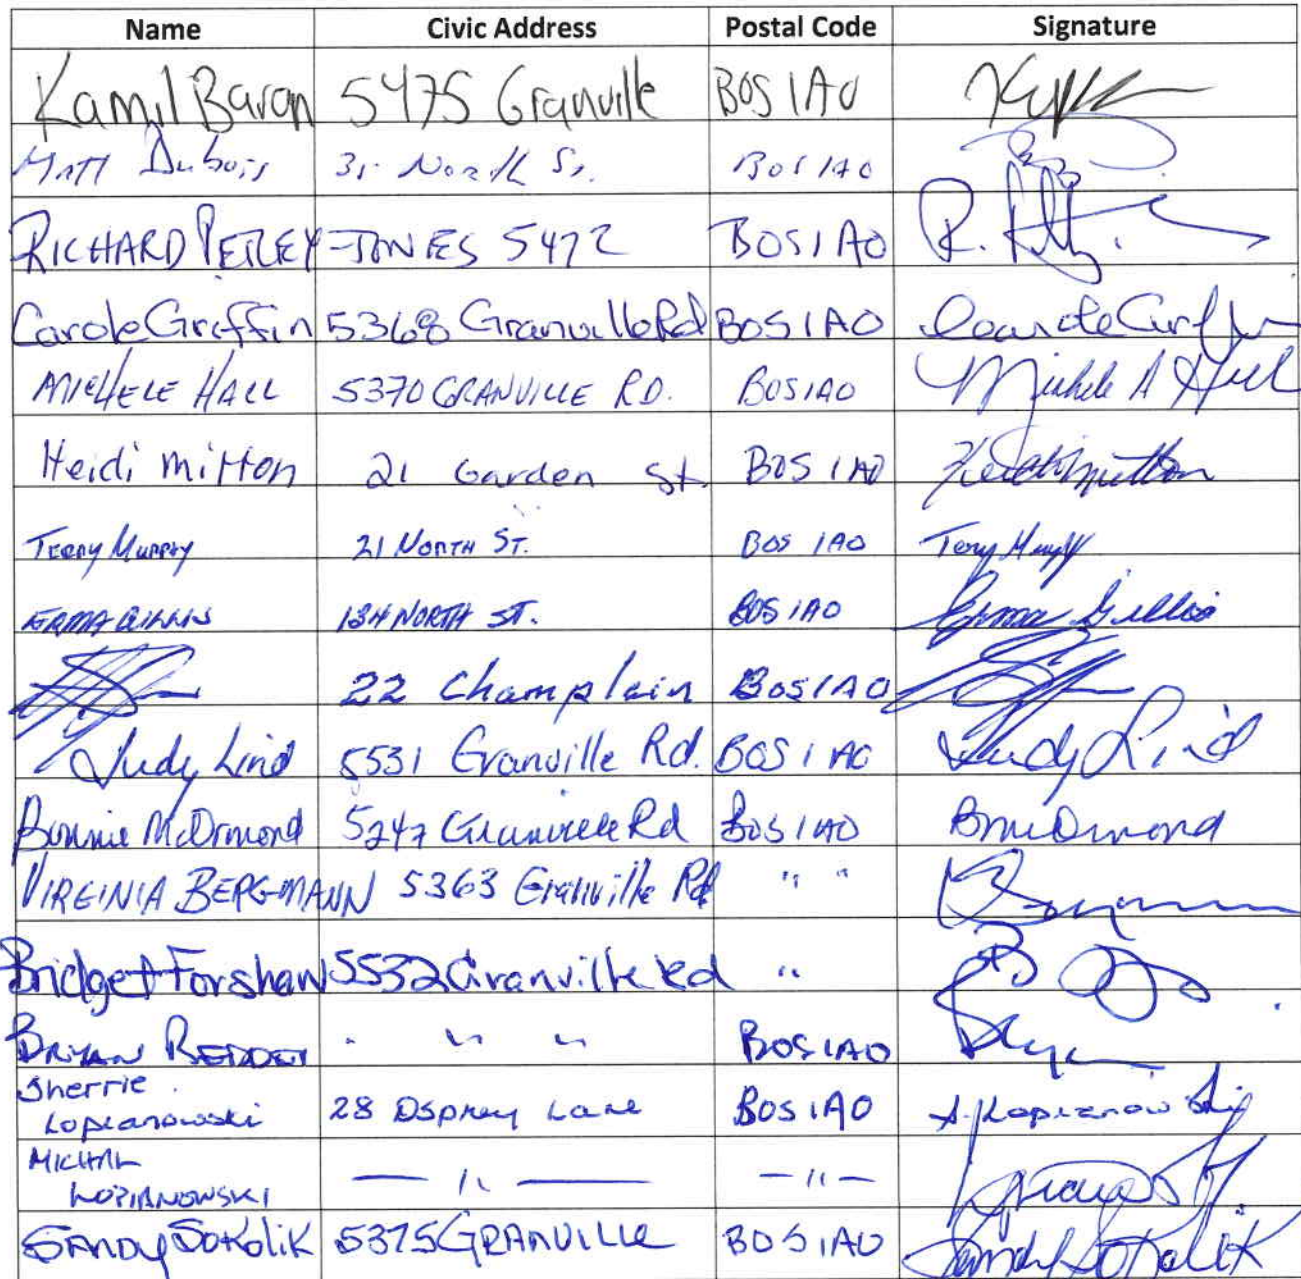 Name Civic Address Postal Code Signature
Kamil Baron 5475 Granville B0S 1A0
Matt Dubois 31 North St. B0S 1A0
RICHARD PETLEY-JONES 5472 B0S1A0
Carole Griffin 5368 Granville Rd B0S1A0 Carole Griffin
MICHELE HALL 5370 GRANVILLE RD. B0S1A0 Michele A Hall
Heidi Mitton 21 Garden St. B0S 1A0 Heidi Mitton
TERRY MURPHY 21 NORTH ST. B0S 1A0 Terry Murphy
ERMA GILLIS 134 NORTH ST. B0S 1A0 Erma Gillis
22 Champlain B0S1A0
Judy Lind 5531 Granville Rd. B0S 1A0 Judy Lind
Bonnie McOrmond 5247 Granville Rd B0S 1A0
VIRGINIA BERGMANN 5363 Granville Rd " "
Bridget Forshaw 5532 Granville Rd "
BRYAN REDDEN " " " B0S1A0
Sherrie
Lopianowski 28 Osprey Lane B0S1A0 S. Lopianowski
MICHAL
LOPIANOWSKI — " — — " —
SANDY SOKOLIK 5375 GRANVILLE B0S1A0 Sandy Sokolik